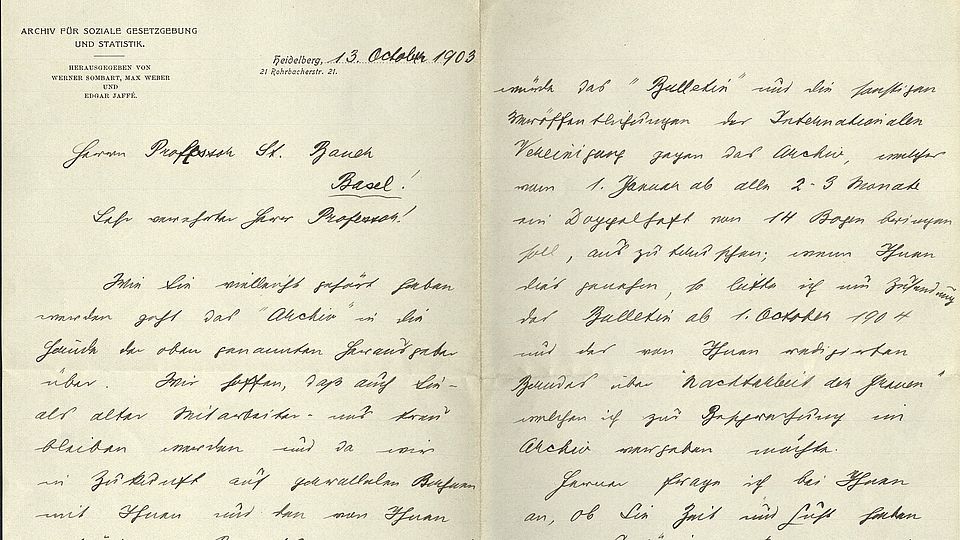 ARCHIV FÜR SOZIALE GESETZGEBUNG
UND STATISTIK.
HERAUSGEGEBEN VON
WERNER SOMBART, MAX WEBER
UND
EDGAR JAFFÉ.
Heidelberg, 13. October 1903
21 Rohrbacherstr. 21.
Herrn Professor St. Bauer
Basel!
Sehr verehrter Herr Professor!
Wie Sie vielleicht gehört haben
werden geht das "Archiv" in die
Hände der oben genannten Herausgeber
über. Wir hoffen, daß auch Sie -
als alter Mitarbeiter - uns treu
bleiben werden und da wir
in Zukunft auf parallelen Bahnen
mit Ihnen und den von Ihnen
würde das "Bulletin" und die sonstigen
Veröffentlichungen der Internationalen
Vereinigung gegen das Archiv, welches
vom 1. Januar ab alle 2-3 Monate
ein Doppelheft von 14 Bogen bringen
soll, auszutauschen; wenn Ihnen
das genehm, so bitte ich um Zusendung
des Bulletin ab 1. October 1904
und des von Ihnen redigirten
Bandes über "Nachtarbeit der Frauen"
welchen ich zur Besprechung im
Archiv vergeben möchte.
Ferner frage ich bei Ihnen
an, ob Sie Zeit und Lust haben